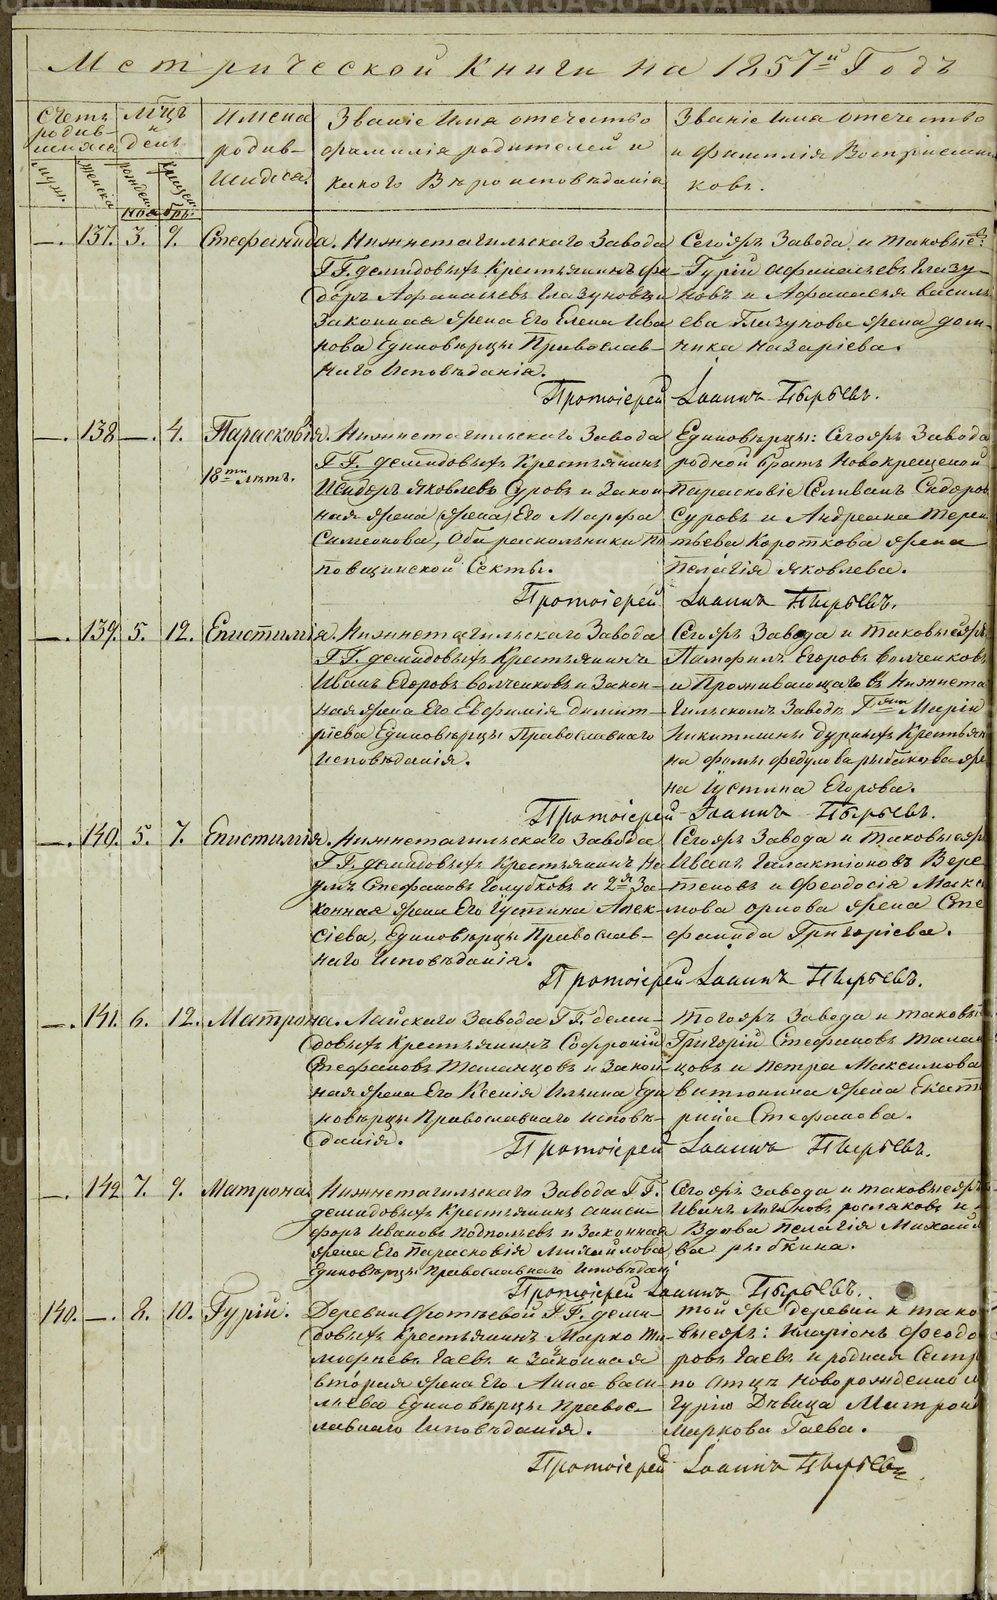 METRIKI.GASO-URAL.RU
Метрической Книги на 1857й Годъ
Счетъ родив-шихся
Мцъ и день
Имена родив-шихся.
Званіе Имя отечество фамилія родителей и какого Вѣроисповѣданія
Званіе Имя отечество и фамилія Воспріемни-ковъ.
муж. женска рожден. крещен.
Ноя бръ.
—. 137. 3. 9. Стефанида. Нижнетагильскаго Завода
ГГ. Демидовыхъ Крестьянинъ Фе-
доръ Афанасьевъ Глазуновъ и
Законная жена Его Елена Ива
нова Единовѣрцы Православ-
наго Исповѣданія.
Сегожъ Завода и таковые:
Гурій Афанасьевъ Глазу-
новъ и Афанасья Василь
ева Глазунова жена дом-
ника Назарiева.
Протоіерей Іоаннъ Пырьевъ.
—. 138 —. 4. Парасковія. Нижнетагильскаго Завода
18ти лѣтъ.
ГГ. Демидовыхъ Крестьянинъ
Исидоръ Яковлевъ Суровъ и Закон
ная жена (жена) Его Марфа
Симеонова, Оба раскольники по
повщинской Секты.
Единовѣрцы: Сегожъ Завода
родной братъ Новокрещеной
Парасковіе Селиванъ Сидоров
Суровъ и Андреана Терен
тьева Короткова жена
Пелагія Яковлева.
Протоіерей Іоаннъ Пырьевъ.
—. 139. 5. 12. Епистимія. Нижнетагильскаго Завода
ГГ. Демидовыхъ Крестьянинъ
Иванъ Егоровъ Волченковъ и Закон-
ная жена Его Евфимія Димит-
ріева Единовѣрцы Православнаго
исповѣданія.
Сегожъ Завода и таковыежъ
Памфилъ Егоровъ Волченковъ
и Проживающаго въ Нижнета
гильскомъ Заводѣ Гжи Маріи
Никитишны Дурныхъ Крестьян
на Фомы Федулова рыбакова же
на Іустина Егорова.
Протоіерей Іоаннъ Пырьевъ.
—. 140. 5. 7. Епистимія. Нижнетагильскаго Завода
ГГ. Демидовыхъ Крестьянинъ На
умъ Стефановъ Голубковъ и 2я За-
конная жена Его Іустина Алек-
сіева, Единовѣрцы Православ-
наго Исповѣданія.
Сегожъ Завода и таковыежъ
Иванъ Галактіоновъ Вере
теновъ и Феодосія Макси
мова орлова жена Сте
фанида Григоріева.
Протоіерей Іоаннъ Пырьевъ.
—. 141. 6. 12. Матрона. Лайскаго Завода ГГ. Деми-
довыхъ Крестьянинъ Софроній
Стефановъ Таланцовъ и Закон-
ная жена Его Ксенія Ильина Еди
новѣрцы Православнаго исповѣ-
данія.
Тогожъ Завода и таковые
Григорій Стефановъ Талан
цовъ и Петра Максимова
жена Екате
рина Стефанова.
Протоіерей Іоаннъ Пырьевъ.
—. 142 7. 9. Матрона. Нижнетагильскаго Завода ГГ.
Демидовыхъ Крестьянинъ Ники-
форъ Ивановъ Подпольевъ и Законная
жена Его Парасковія Михайлова
Единовѣрцы Православнаго Исповѣдані
Сегожъ Завода и таковыежъ
Иванъ Логиновъ росляковъ и
Вдова Пелагія Михаил
ва рыбкина.
Протоіерей Іоаннъ Пырьевъ.
140. —. 8. 10. Гурій. Деревни Фотѣевой ГГ. Деми-
довыхъ Крестьянинъ Марко Ти-
моѳѣевъ Гаевъ и Законная
вторая жена Его Анна Васи-
льева Единовѣрцы Правос-
лавнаго Исповѣданія.
Той же деревни и тако
выежъ: Иларіонъ Феодо
ровъ Гаевъ и родная Сестр
по Отцѣ Новорожденно
Гурію Дѣвица Матрон
Маркова Гаева.
Протоіерей Іоаннъ Пырьевъ
METRIKI.GASO-URAL.RU